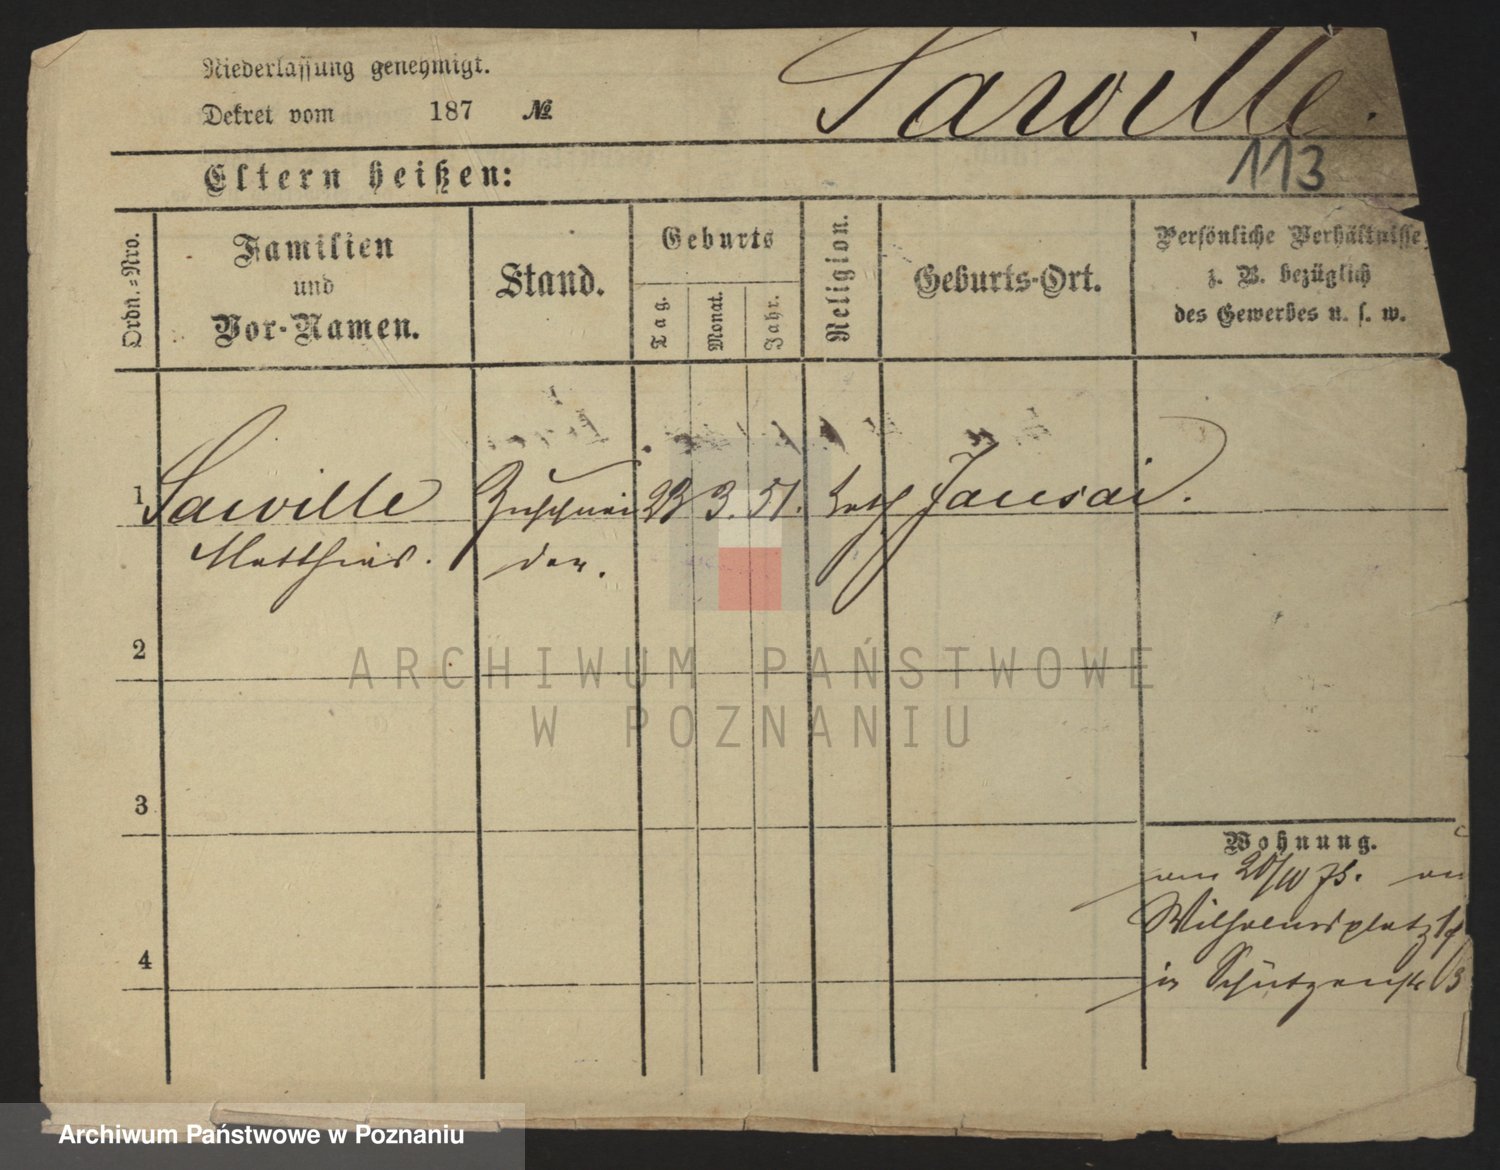 Niederlassung genehmigt.
Dekret vom 187 №
Sarville.
113
Eltern heißen:
Ordn.-Nro.
Familien
und
Vor-Namen.
Stand.
Geburts
Tag.
Monat.
Jahr.
Religion.
Geburts-Ort.
Persönliche Verhältnisse
z. B. bezüglich
des Gewerbes u. s. w.
1 Sarville Zuschnei 23 3. 51. kath
Matthias. der.
2
3
4
Wohnung.
20/10
Wilhelmsplatz
in Schützenstr
ARCHIWUM PAŃSTWOWE
W POZNANIU
Archiwum Państwowe w Poznaniu